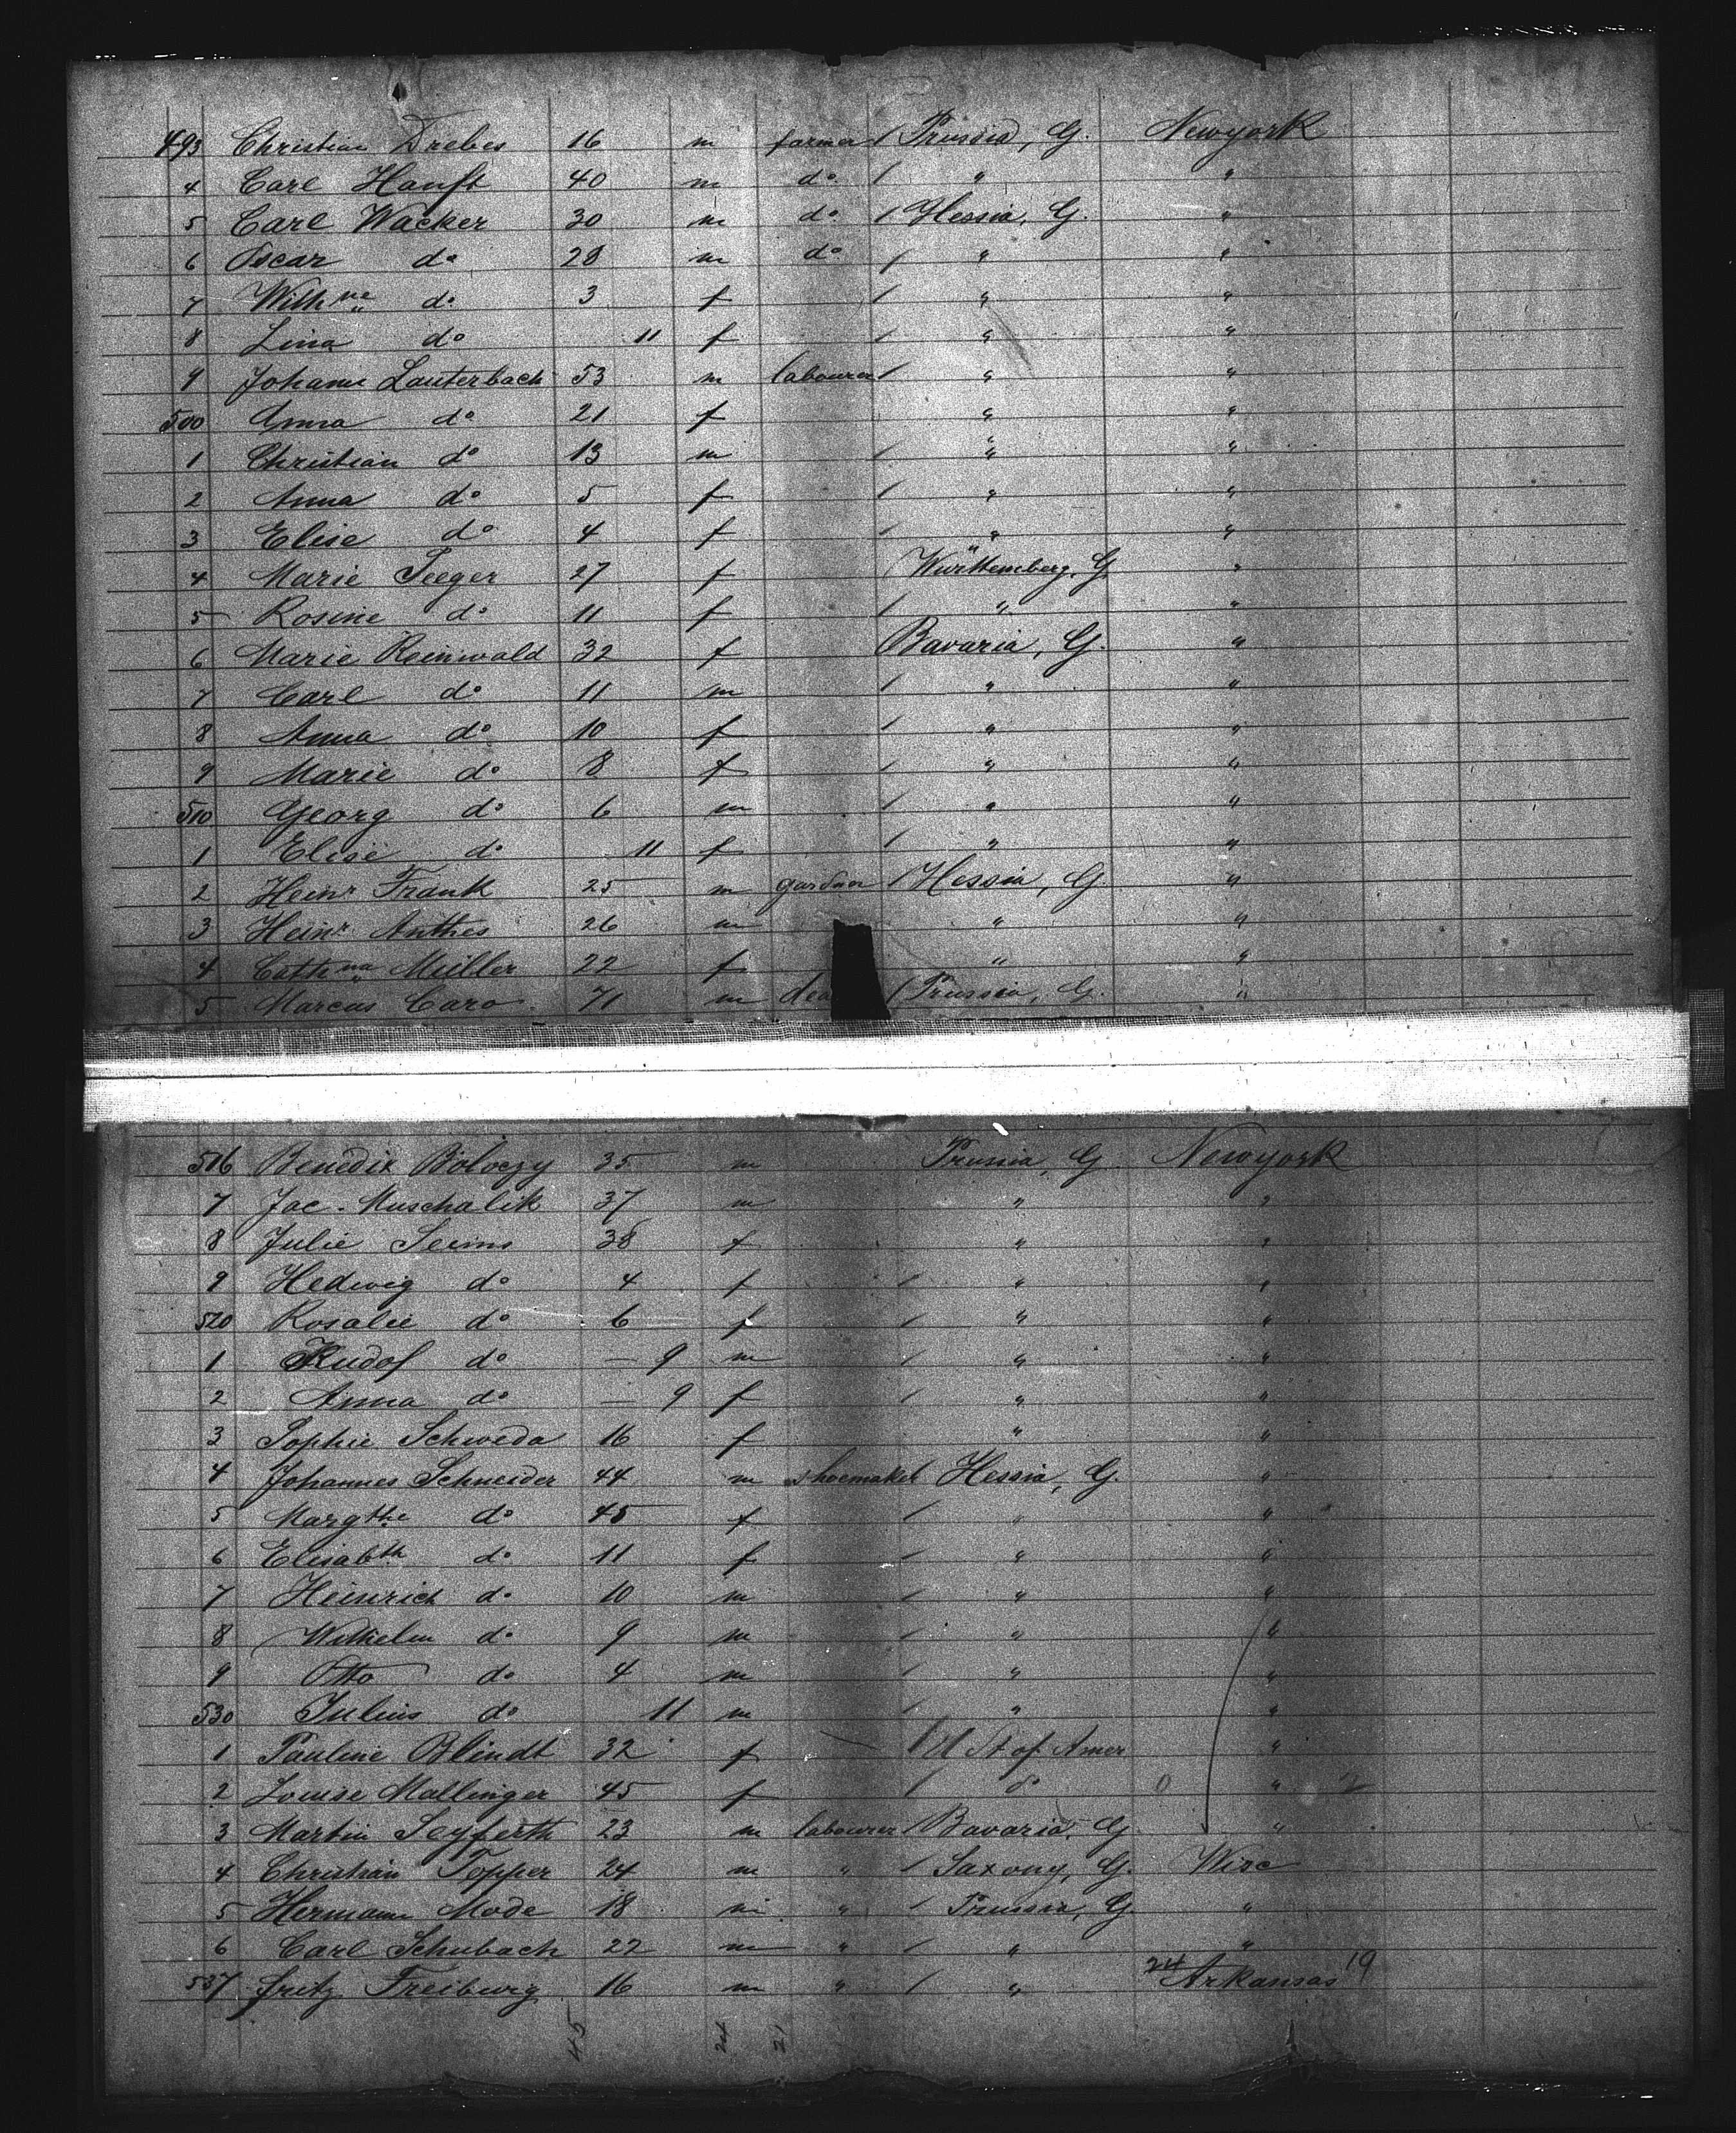 493 Christian Drebes 16 m farmer / Prussia, G. Newyork
4 Carl Hanft 40 m do / " "
5 Carl Wacker 30 m do / Hessia, G. "
6 Oscar do 28 m do / " "
7 Wilhne do 3 f / " "
8 Lina do 11 f / " "
9 Johann Lauterbach 53 m labourer / " "
500 Anna do 21 f " "
1 Christian do 13 m / " "
2 Anna do 5 f / " "
3 Elise do 4 f / " "
4 Marie Seeger 27 f Württemberg, G. "
5 Rosine do 11 f / " "
6 Marie Reinwald 32 f Bavaria, G. "
7 Carl do 11 m / " "
8 Anna do 10 f / " "
9 Marie do 8 f / " "
510 Georg do 6 m / " "
1 Elise do 11 f / " "
2 Heinr Frank 25 m / Hessia, G. "
3 Heinr. Anthes 26 m " "
4 Cathna Müller 22 f " "
5 Marcus Caro 71 m dea / Prussia, G. "
516 Benedix 35 m Prussia, G. Newyork
7 Jac. Muschalik 37 m " "
8 Julie 38 f " "
9 Hedwig do 4 f / " "
520 Rosalie do 6 f / " "
1 Rudof do — 9 m / " "
2 Anna do — 9 f / " "
3 Sophie Schweda 16 f " "
4 Johannes Schneider 44 m shoemaker Hessia, G. "
5 Margthe do 45 f / " "
6 Elisabth do 11 f / " "
7 Heinrich do 10 m / " "
8 Wilhelm do 9 m / " "
9 Otto do 4 m / " "
530 Julius do 11 m / " "
1 Pauline Blindt 32 f — / U St of Amer "
2 Louise Mallinger 45 f / do 0 " 2
3 Martin Seyferth 23 m labourer / Bavaria, G. "
4 Christian Topper 24 m " / Saxony, G. Wisc
5 Hermann Mode 18 m " / Prussia, G. "
6 Carl Schubach 22 m " / " "
537 Fritz Freiburg 16 m " / " 24 Arkansas 19
45 24 21